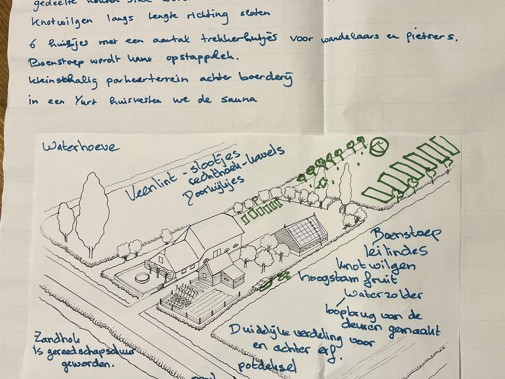 gedeelte
Knotwilgen langs lengte richting sloten
6 huisjes met een aantal trekkerhutjes voor wandelaars en fietsers.
Boenstoep wordt kano opstapplek.
kleinschalig parkeerterrein achter boerderij
in een Yurt huisvesten we de sauna
Waterhoeve
Veenlint - slootjes
rechthoek-kavels
Doorkijkjes
Boenstoep
leilindes
knotwilgen
hoogstam fruit
Waterzolder
loopbrug van de
deuren gemaakt
Duidelijke verdeling voor
en achter erf.
potdeksel
Zandhok
is gereedschapschuur
geworden.